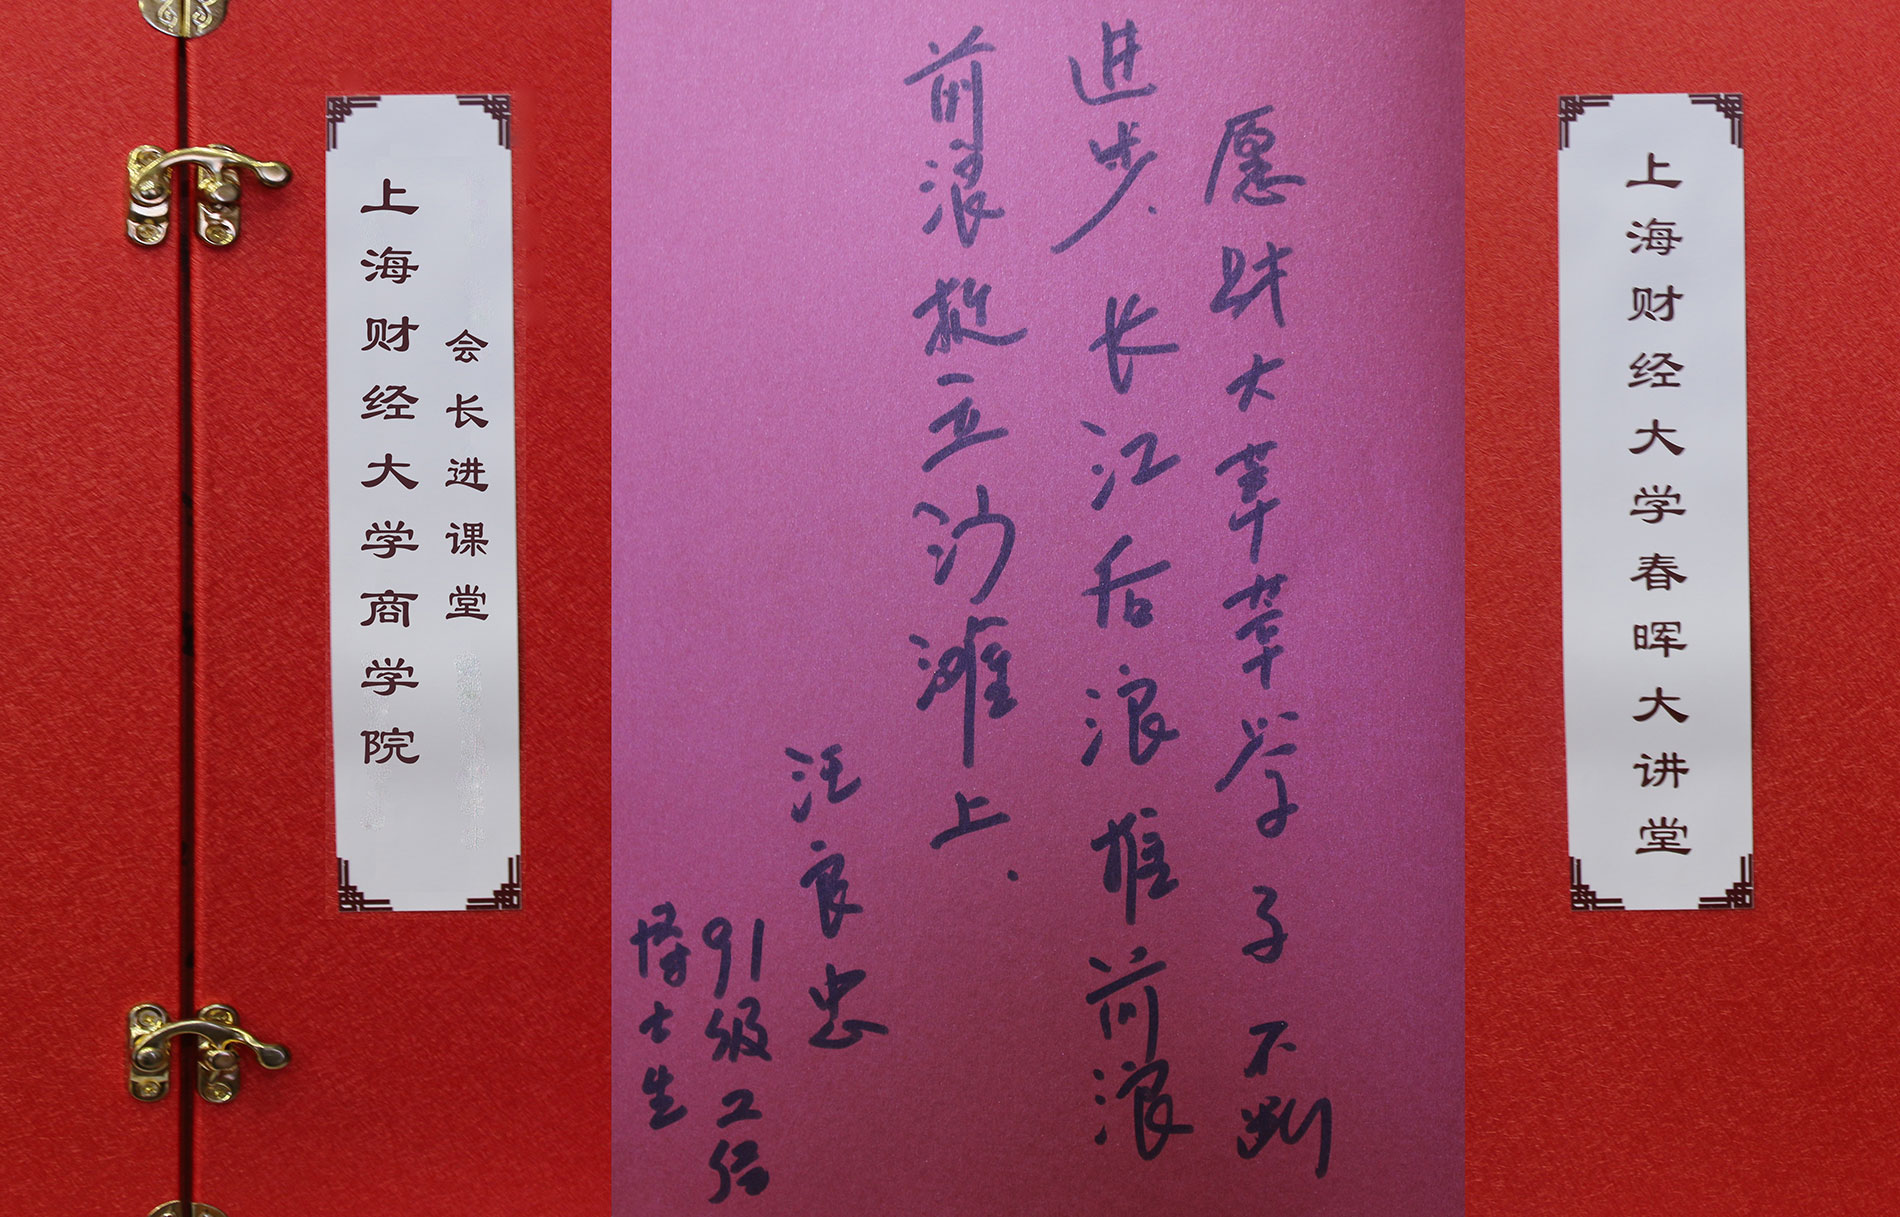 上海财经大学商学院
会长进课堂
愿财大莘莘学子不断
进步、长江后浪推前浪
前浪挺立沙滩上.
汪良忠
91级工经
博士生
上海财经大学春晖大讲堂